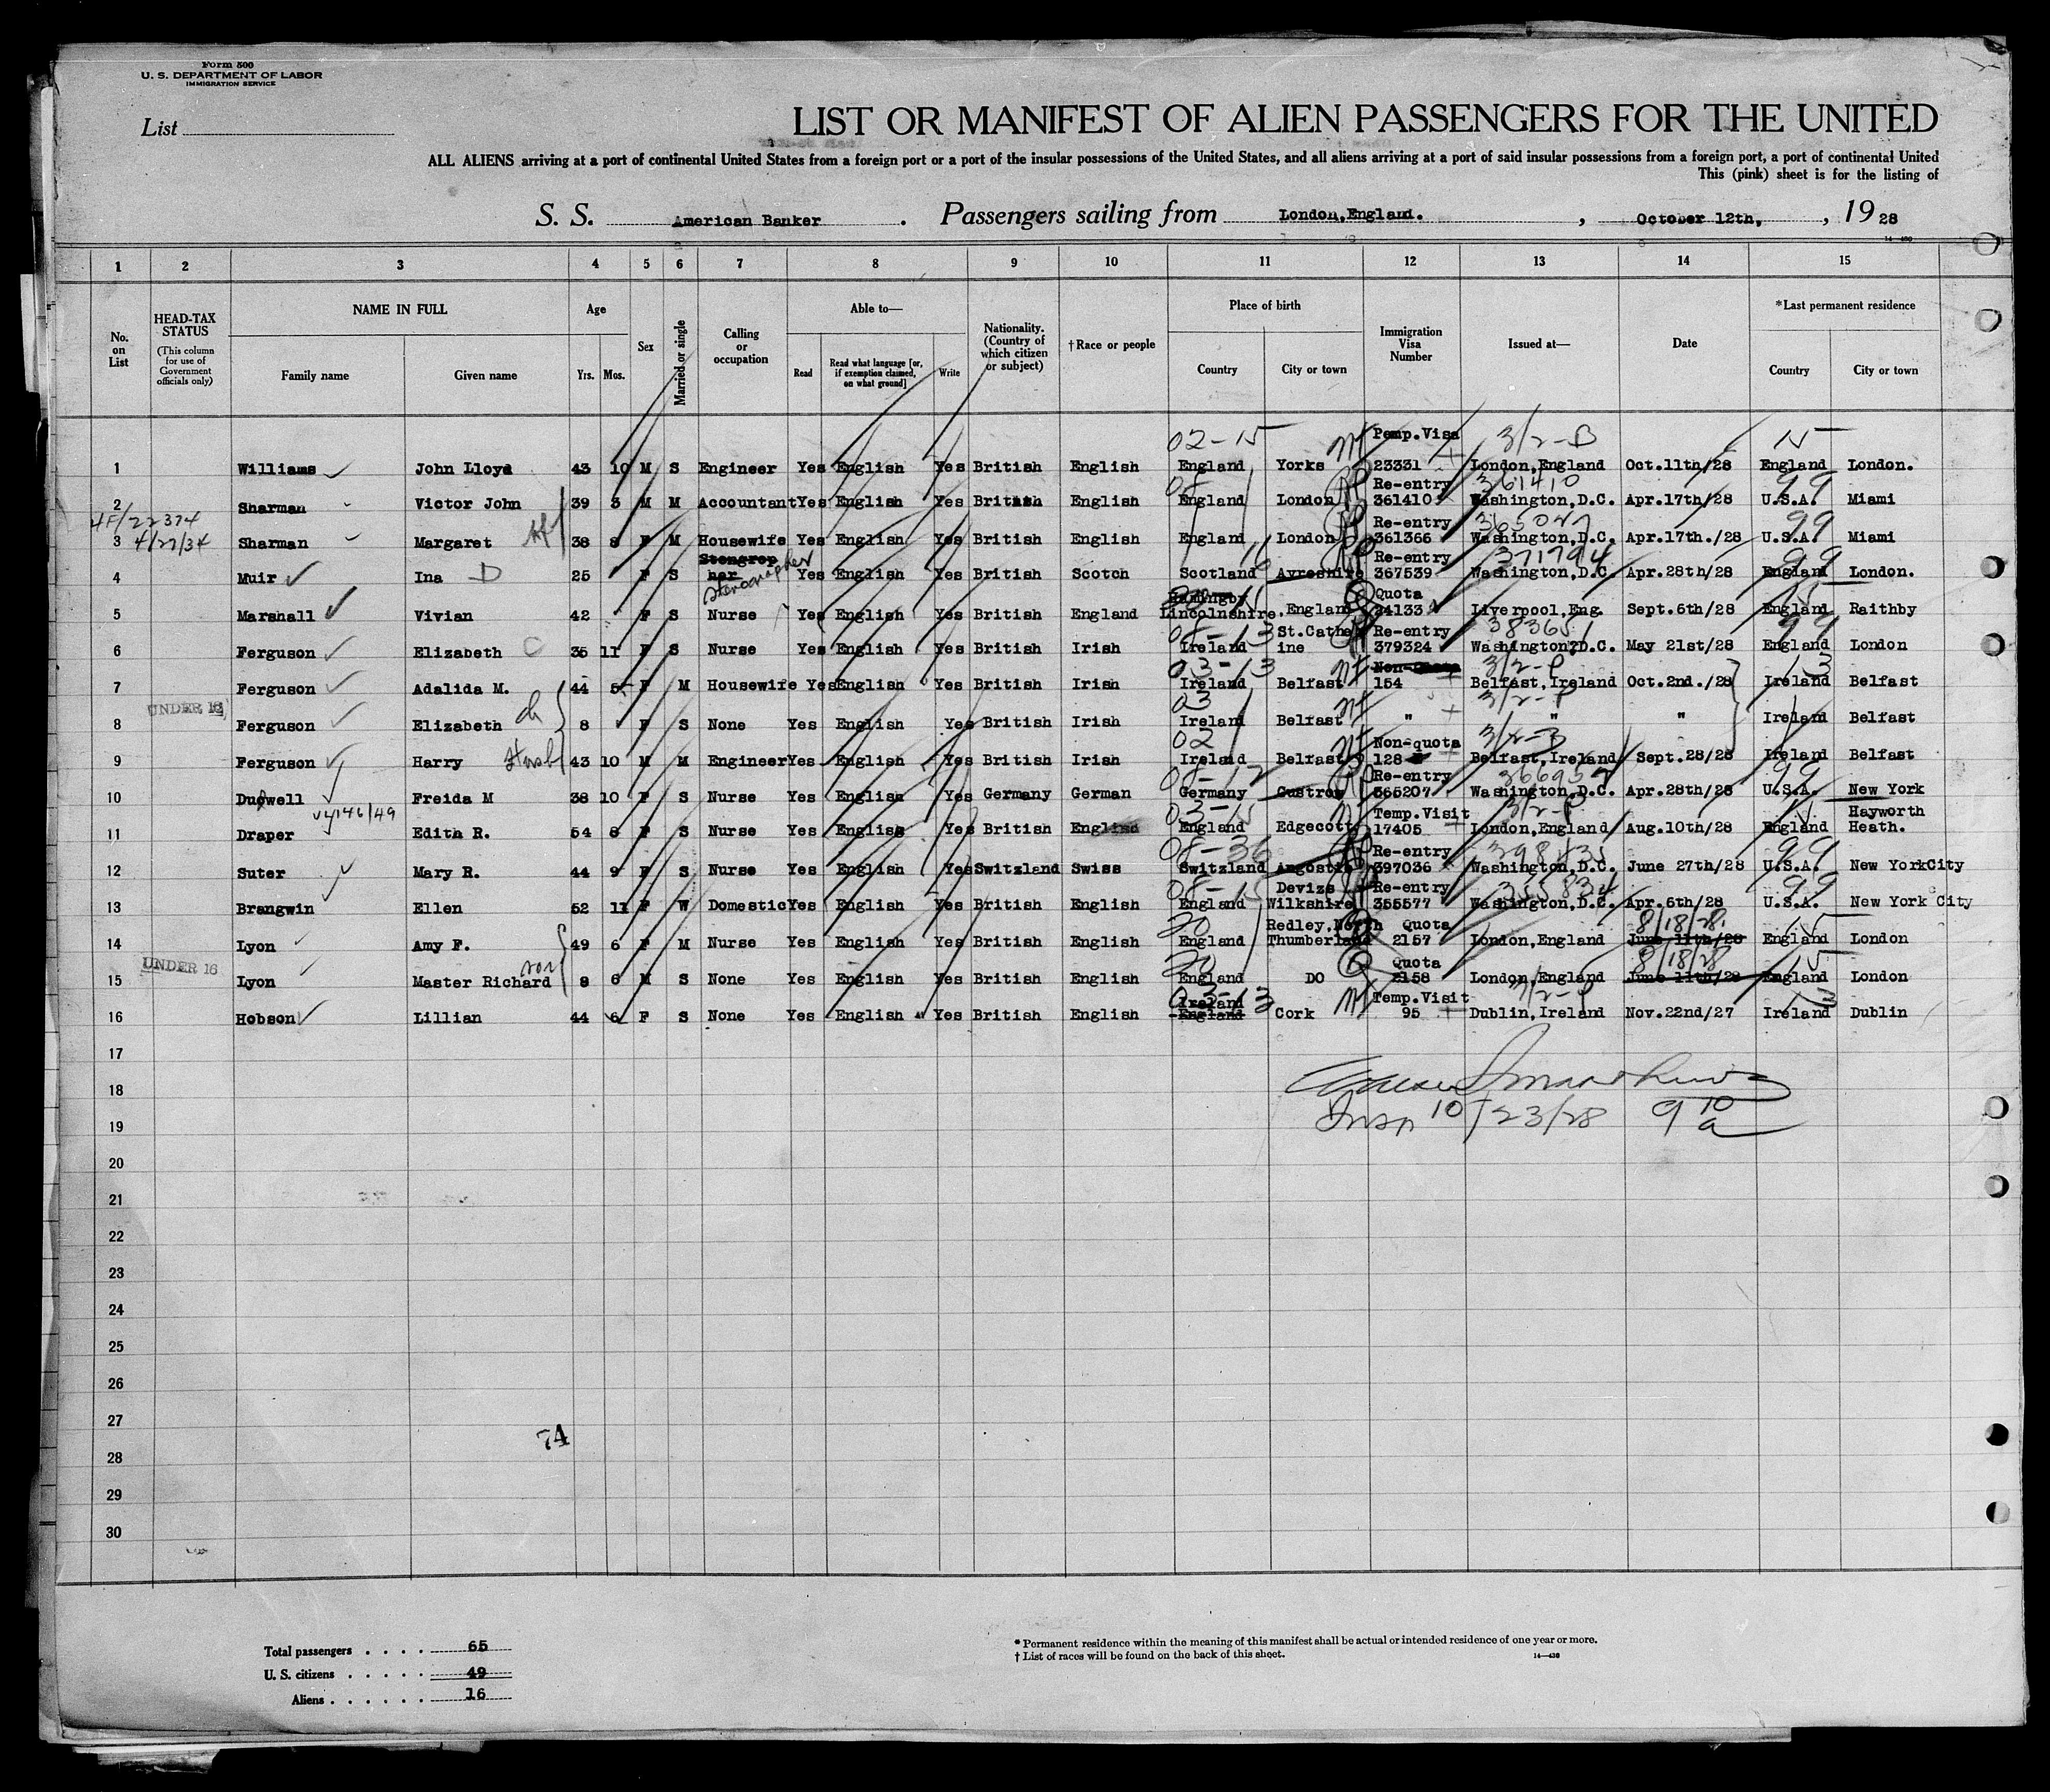 Form 500
U. S. DEPARTMENT OF LABOR
IMMIGRATION SERVICE
List
LIST OR MANIFEST OF ALIEN PASSENGERS FOR THE UNITED
ALL ALIENS arriving at a port of continental United States from a foreign port or a port of the insular possessions of the United States, and all aliens arriving at a port of said insular possessions from a foreign port, a port of continental United
This (pink) sheet is for the listing of
S. S. American Banker . Passengers sailing from London,England. , October 12th, , 19 28
14-430
1 2 3 4 5 6 7 8 9 10 11 12 13 14 15
No. on List
HEAD-TAX STATUS (This column for use of Government officials only)
NAME IN FULL
Family name
Given name
Age
Yrs. Mos.
Sex
Married or single
Calling or occupation
Able to—
Read
Read what language [or, if exemption claimed, on what ground]
Write
Nationality. (Country of which citizen or subject)
†Race or people
Place of birth
Country
City or town
Immigration Visa Number
Issued at—
Date
*Last permanent residence
Country
City or town
02-15 Pemp.Visa 3/2-B 15
1 Williams John Lloyd 43 10 M S Engineer Yes English Yes British English England Yorks 23331 London,England Oct.11th/28 England London.
Re-entry 361410 99
2 Sharman Victor John 39 3 M M Accountant Yes English Yes British English England London 361410 Washington,D.C. Apr.17th/28 U.S.A. Miami
4F/22374
4/27/34
Re-entry 99
3 Sharman Margaret 38 8 F M Housewife Yes English Yes British English England London 361366 Washington,D.C. Apr.17th./28 U.S.A. Miami
Stengrop Re-entry 371794 99
4 Muir Ina D 25 F S her stenographer Yes English Yes British Scotch Scotland Ayreshire 367539 Washington,D.C. Apr.28th/28 England London.
Quota 15
5 Marshall Vivian 42 F S Nurse Yes English Yes British England Lincolnshire.England 24133 Liverpool,Eng. Sept.6th/28 England Raithby
08-13 St.Cathe Re-entry 99
6 Ferguson Elizabeth C 35 11 F S Nurse Yes English Yes British Irish Ireland ine 379324 Washington,D.C. May 21st/28 England London
03-13 3/2-P 13
7 Ferguson Adalida M. 44 5 F M Housewife Yes English Yes British Irish Ireland Belfast 154 Belfast,Ireland Oct.2nd./28 Ireland Belfast
UNDER 16 03 3/2-P
8 Ferguson Elizabeth ch 8 F S None Yes English Yes British Irish Ireland Belfast " " " Ireland Belfast
02 Non-quota 3/2-3
9 Ferguson Harry Husb 43 10 M M Engineer Yes English Yes British Irish Ireland Belfast 128 Belfast,Ireland Sept.28/28 Ireland Belfast
08-12 Re-entry 99
10 Freida M 38 10 F S Nurse Yes English Yes Germany German Germany Gustrow 365207 Washington,D.C. Apr.28th/28 U.S.A. New York
03-15 Temp.Visit 3/2-P 15 Hayworth
11 Draper Edith R. 54 8 F S Nurse Yes English Yes British English England Edgecott 17405 London,England Aug.10th/28 England Heath.
08-36 Re-entry 99
12 Suter Mary R. 44 9 F S Nurse Yes English Yes Switzland Swiss Switzland 397036 Washington,D.C. June 27th/28 U.S.A. New YorkCity
08-15 Devizs Re-entry 99
13 Brangwin Ellen 52 11 F W Domestic Yes English Yes British English England Wilkshire 355577 Washington,D.C. Apr.6th/28 U.S.A. New York City
20 Redley,North Quota 8/18/28 15
14 Lyon Amy F. 49 6 F M Nurse Yes English Yes British English England Thumberland 2157 London,England June 11th/28 England London
UNDER 16 son 20 Quota 8/18/28 15
15 Lyon Master Richard 8 6 M S None Yes English Yes British English England DO 2158 London,England June 11th/28 England London
03-13 Ireland Temp.Visit 3/2-P 13
16 Hobson Lillian 44 6 F S None Yes English Yes British English England Cork 95 Dublin,Ireland Nov.22nd/27 Ireland Dublin
17
18
19 Insp 10/23/28 9 10 a
20
21
22
23
24
25
26
27
74
28
29
30
Total passengers . . . . 65
U. S. citizens . . . . . 49
Aliens . . . . . . 16
* Permanent residence within the meaning of this manifest shall be actual or intended residence of one year or more.
† List of races will be found on the back of this sheet. 14-430